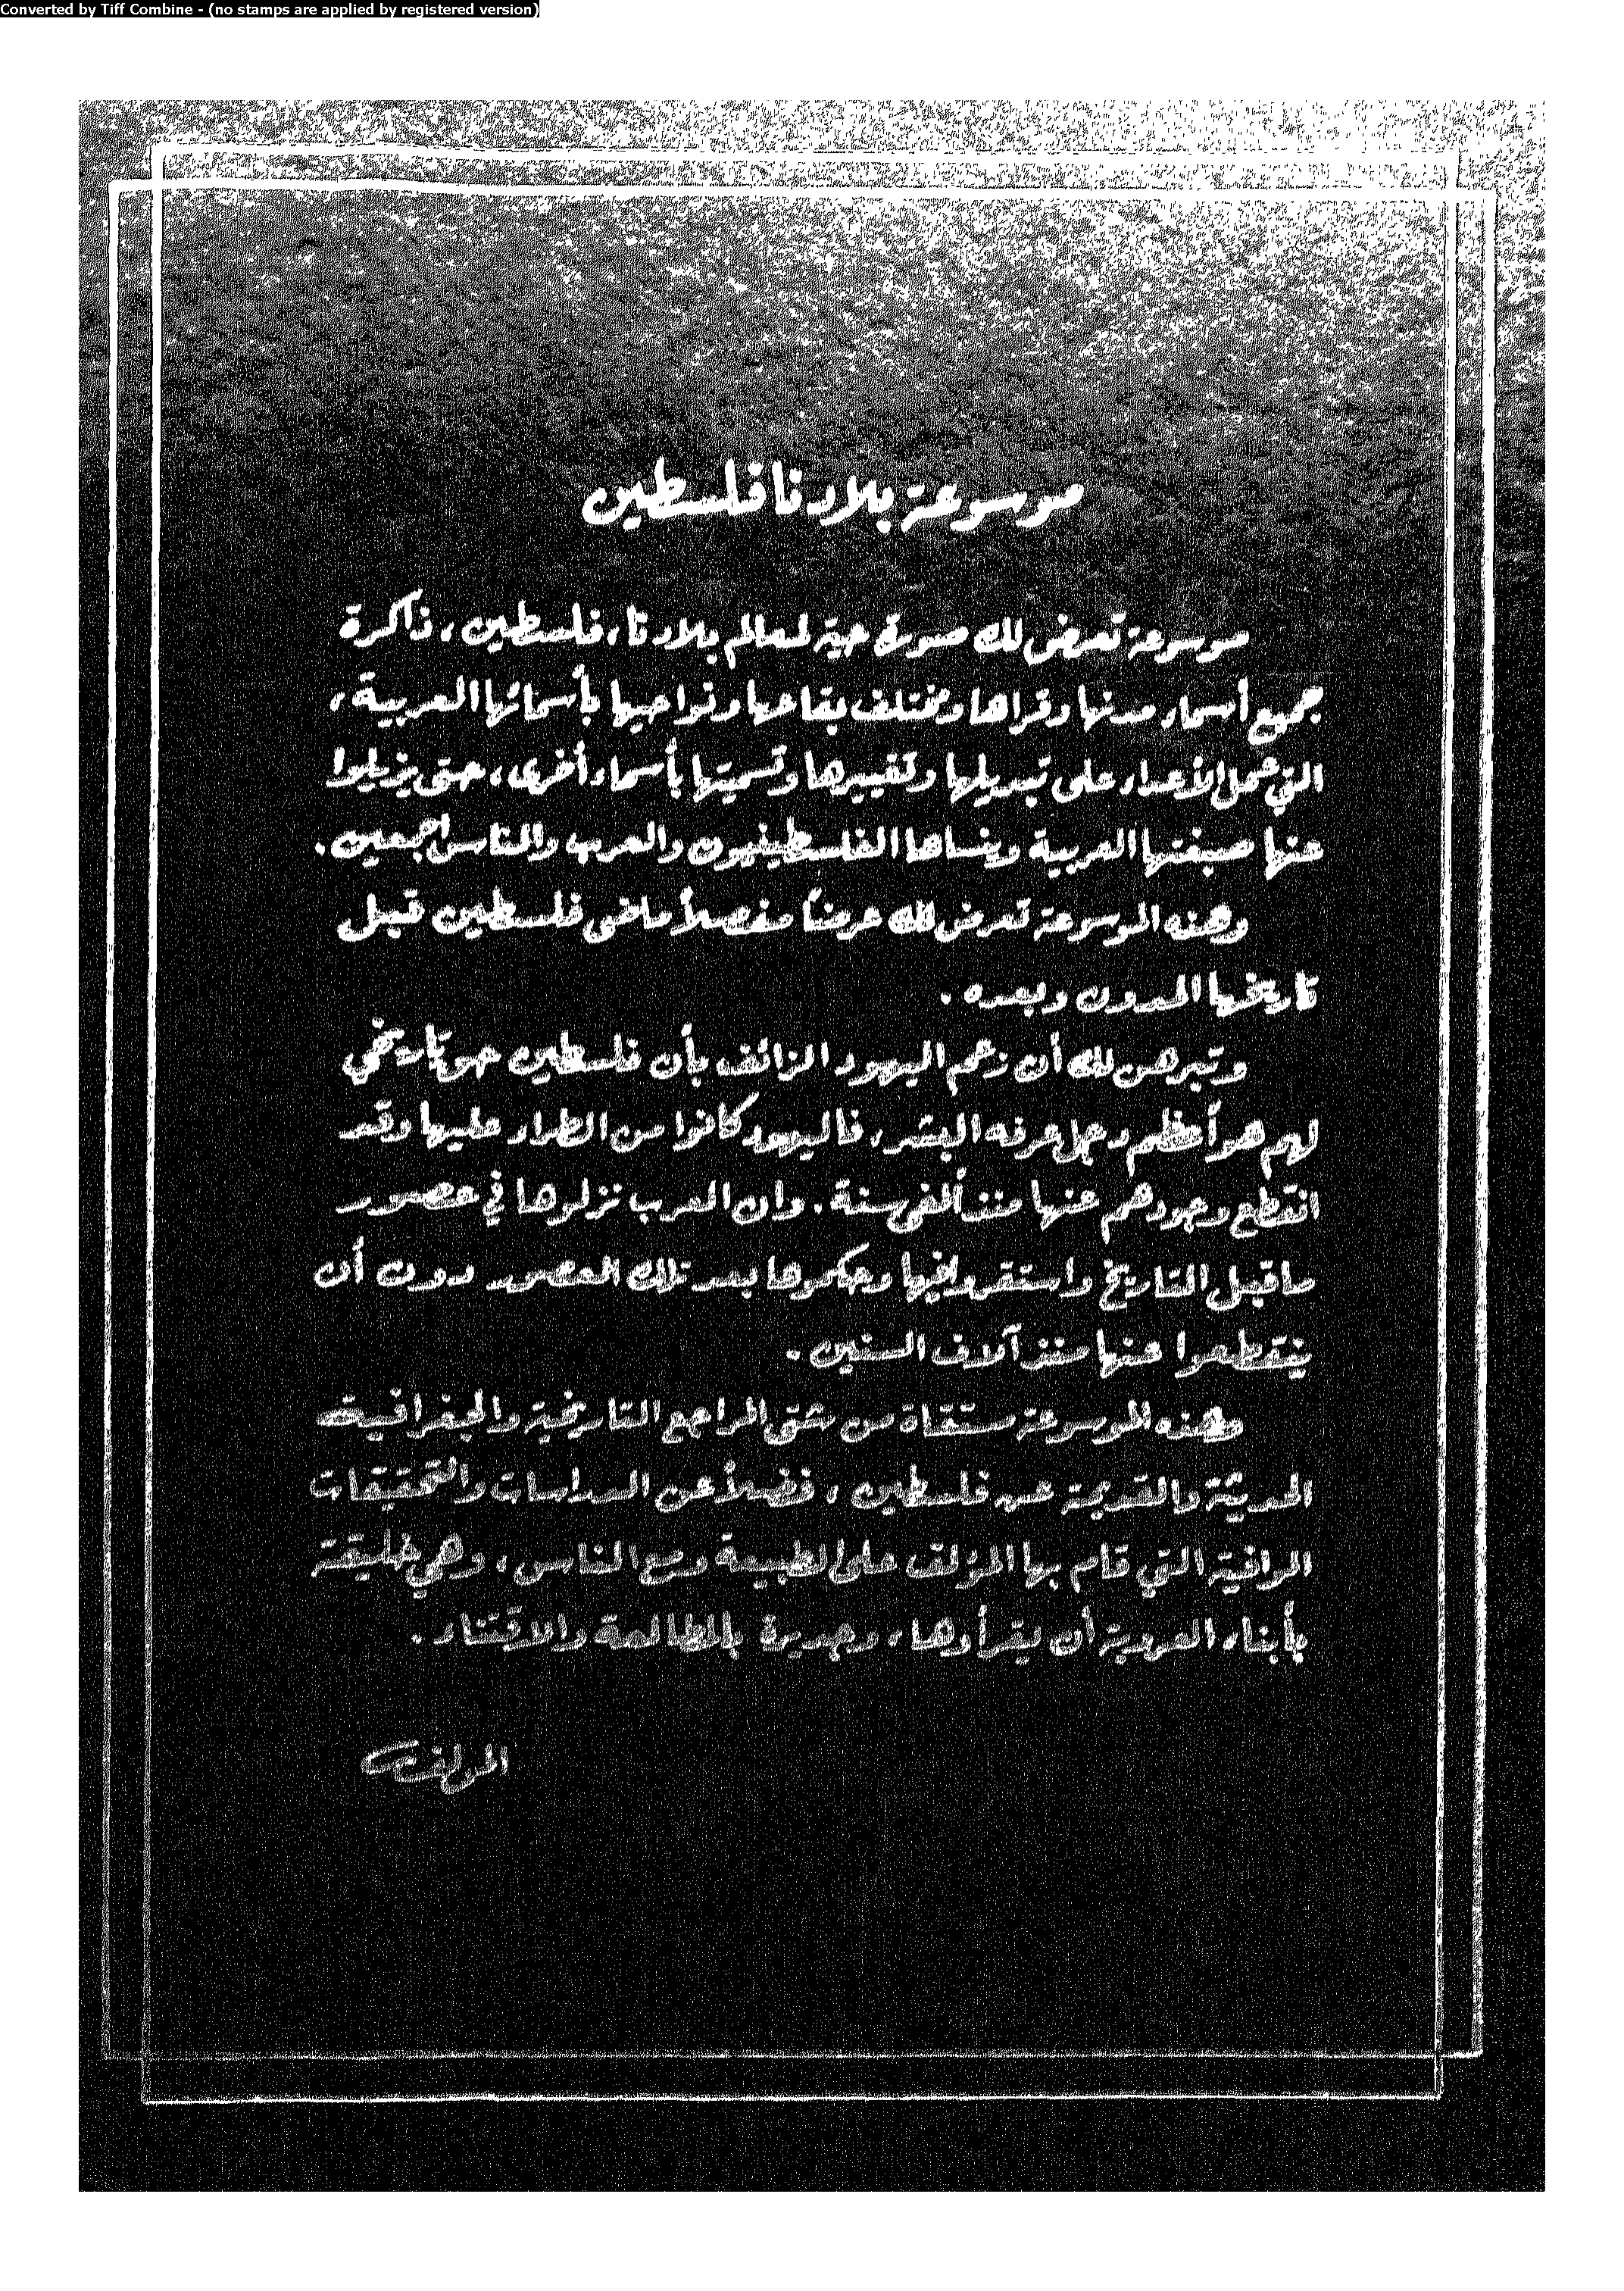 Converted by Tiff Combine - (no stamps are applied by registered version)
موسوعة بلادنا فلسطين
موسوعة تعرض لك صورة حية لمعالم بلادنا، فلسطين، ذاكرة
جميع أسماء مدنها وقراها ومختلف بقاعها ونواحيها بأسمائها العربية،
التي عمل الأعداء على تبديلها وتغييرها وتسميتها بأسماء أخرى، حتى يزيلوا
عنها صبغتها العربية وينساها الفلسطينيون والعرب والناس أجمعين.
وهذه الموسوعة تعرض لك عرضاً مفصلاً ماضي فلسطين قبل
تاريخها المدون وبعده.
وتبرهن لك أن زعم اليهود الزائف بأن فلسطين حق تاريخي
لهم هو أعظم دجل عرفه البشر، فاليهود كانوا من الطراء عليها وقد
انقطع وجودهم عنها منذ ألفي سنة. وان العرب نزلوها في عصور
ما قبل التاريخ واستقروا فيها وحكموها بعد تلك العصور دون أن
ينقطعوا عنها منذ آلاف السنين.
وهذه الموسوعة مستقاة من شتى المراجع التاريخية والجغرافية
الحديثة والقديمة عن فلسطين، فضلاً عن الدراسات والتحقيقات
الوافية التي قام بها المؤلف على الطبيعة ومع الناس، وهي خليقة
بأبناء العروبة أن يقرأوها، وجديرة بالمطالعة والاقتناء.
المؤلف